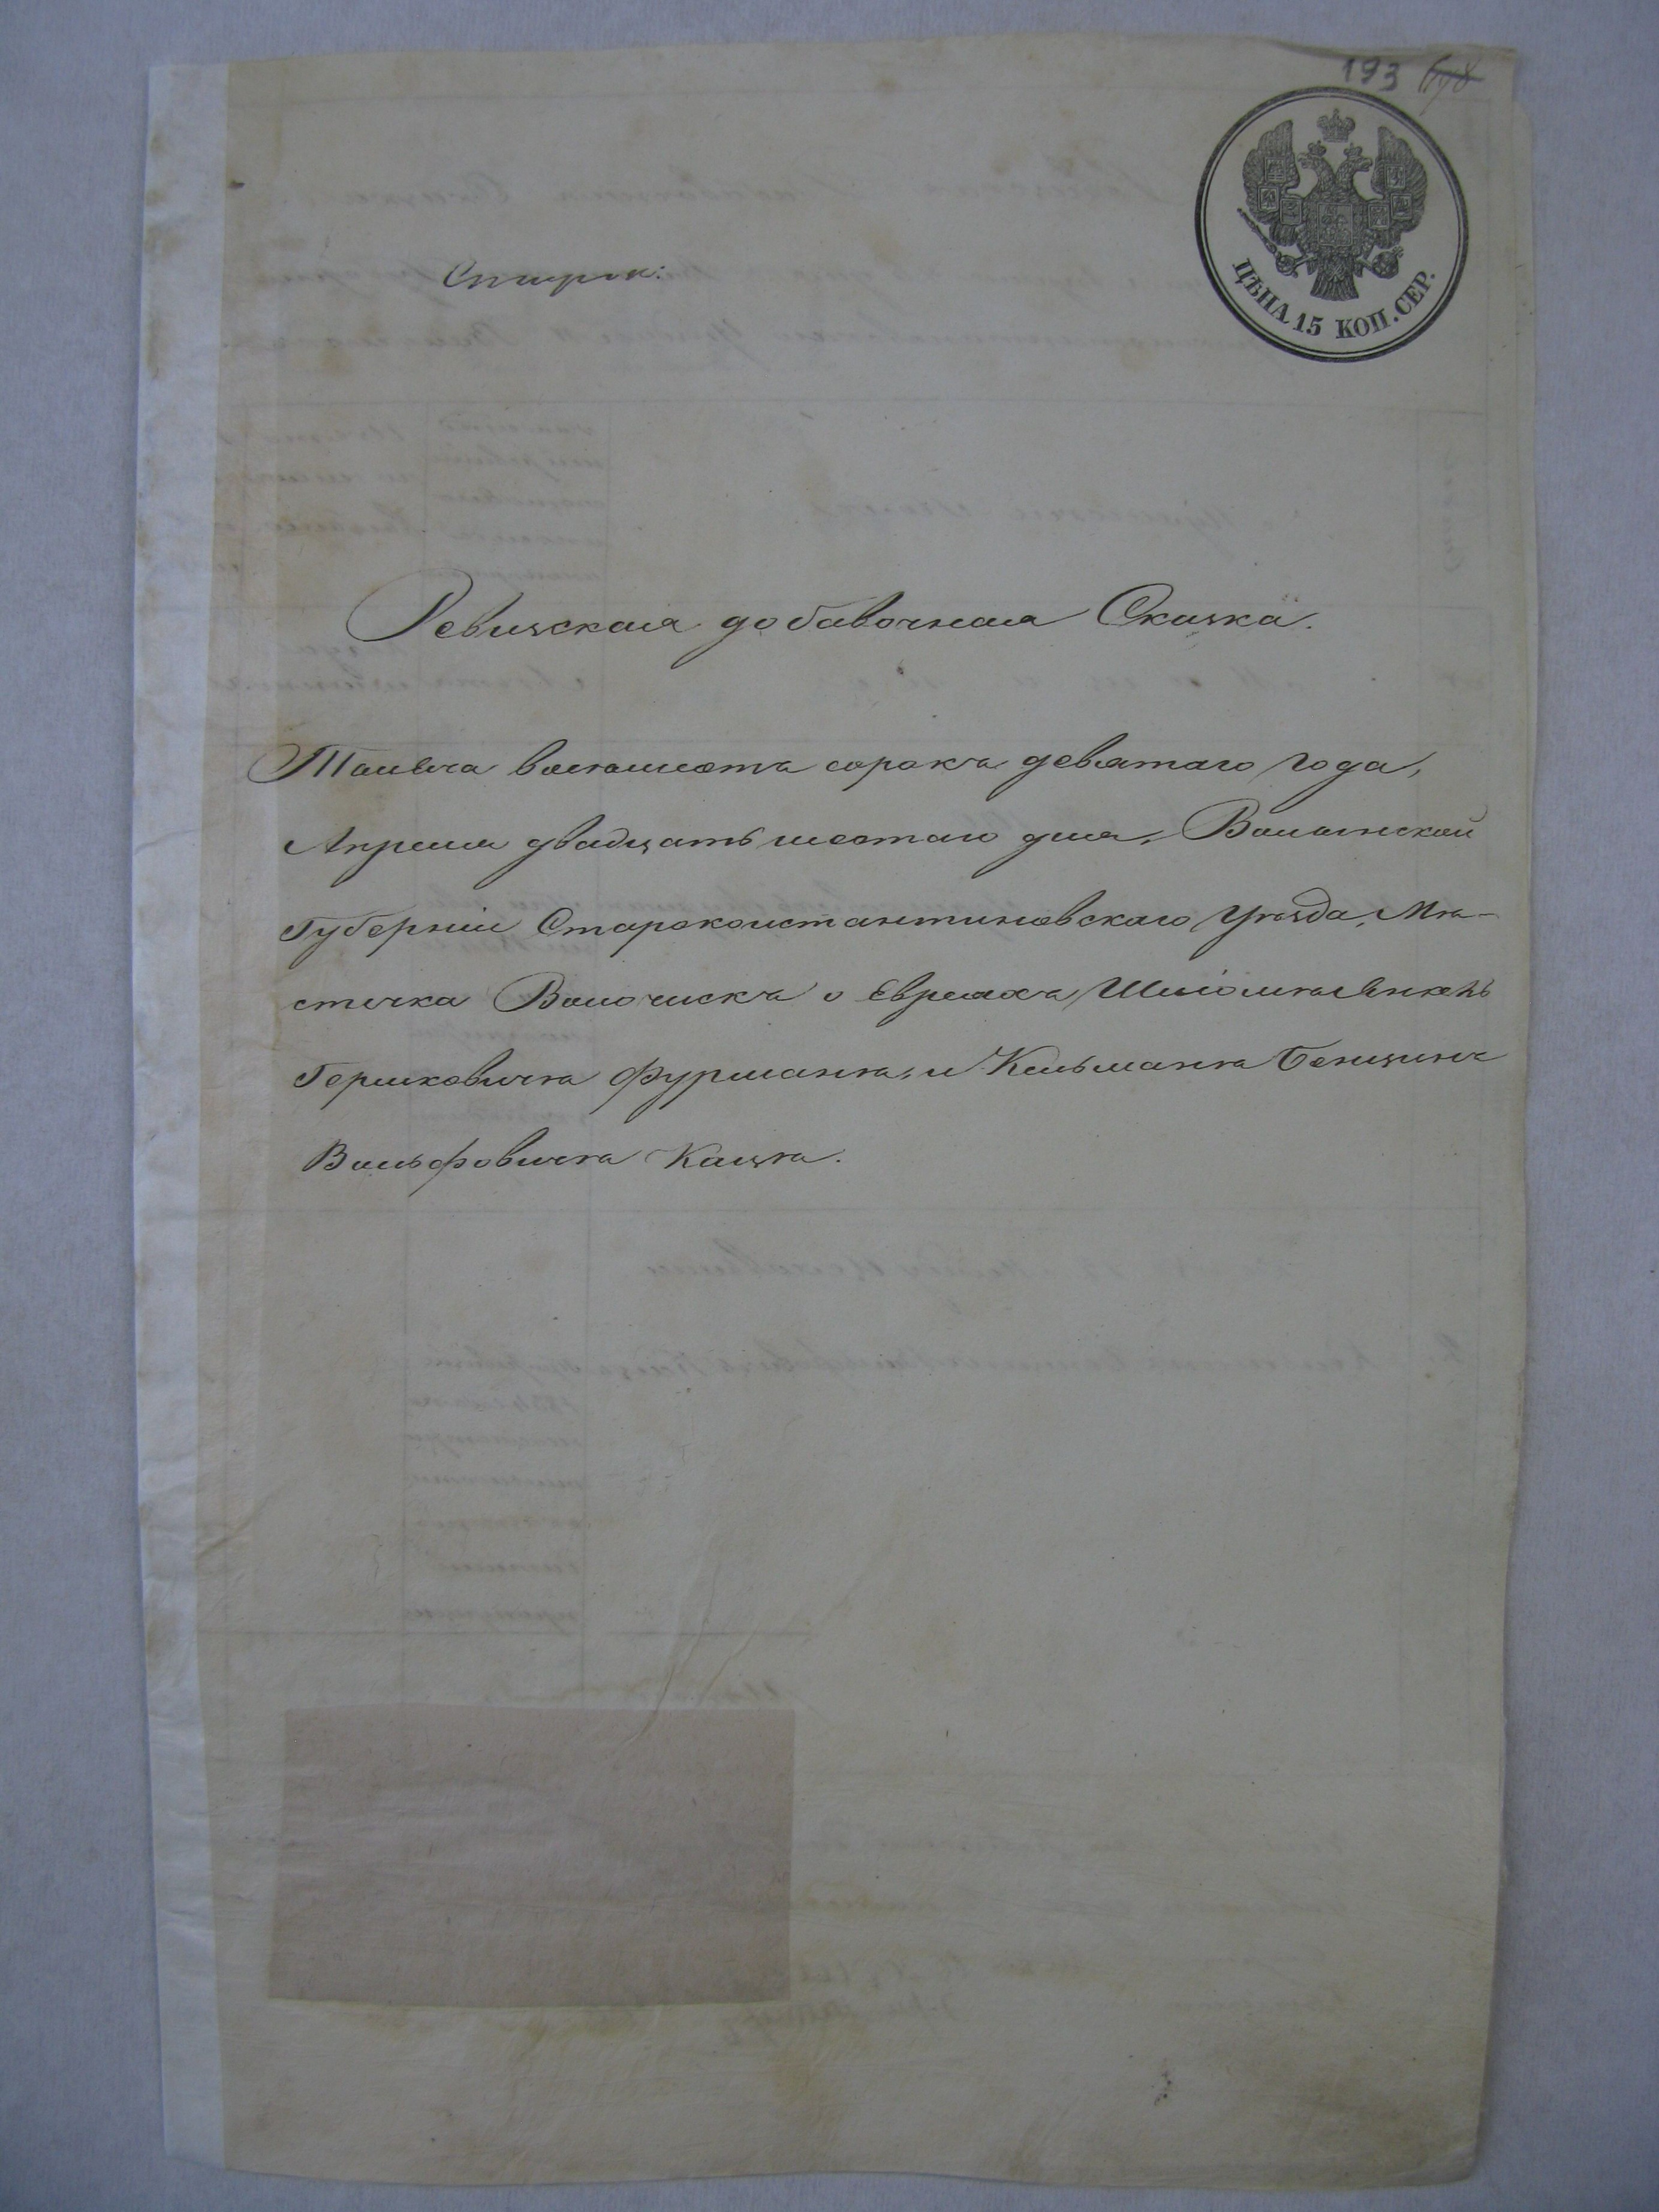 193
ЦѢНА 15 КОП. СЕР.
Ревизская добавочная Сказка.
Тысяча восемьсотъ сорокъ девятаго года,
Апреля двадцать шестаго дня, Волынской
Губерніи Староконстантиновскаго Уѣзда, Мѣ-
стечка Волочискъ о Евреахъ Шліомѣ Янкель
Гершковичѣ Фурманѣ, и Кельманѣ Бенционѣ
Вольфовичѣ Кацѣ.